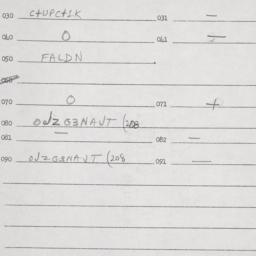 030 C+UPC+1K 031 —
040 O 041 —
050 FALDN
060
070 O 071 +
080 OJZG3NAJT (208
081 — 082 —
090 OJZG3NAJT (208 091 —